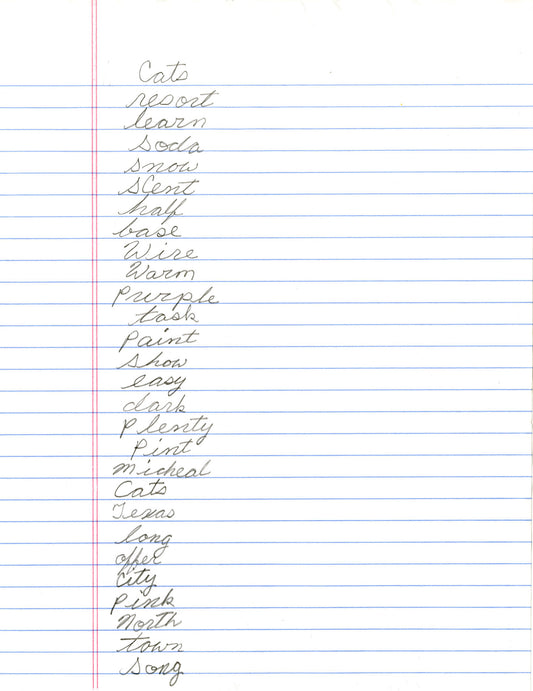 Cats
resort
learn
soda
snow
scent
half
base
Wire
Warm
Purple
task
Paint
show
easy
dark
Plenty
Pint
micheal
Cats
Texas
long
offer
City
Pink
North
town
song